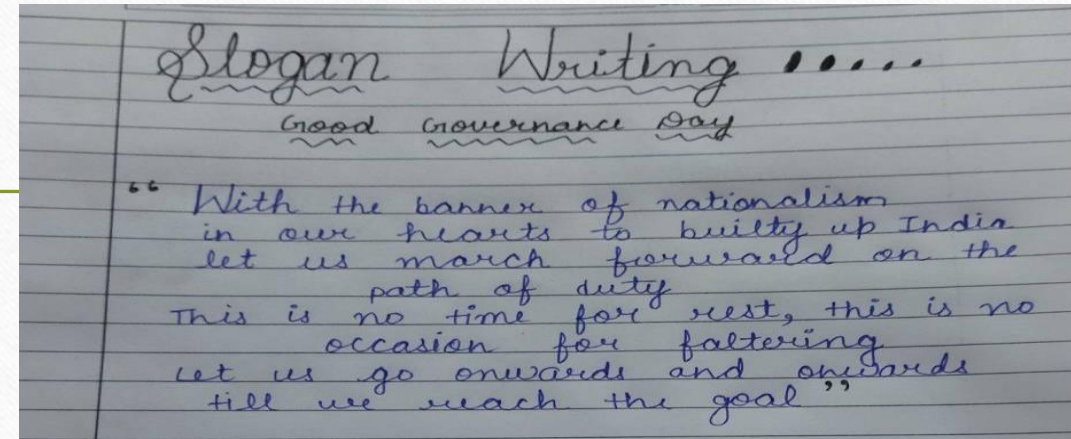 Slogan Writing .....
Good Governance Day
“ With the banner of nationalism
in our hearts to builty up India
let us march forward on the
path of duty
This is no time for rest, this is no
occasion for faltering
Let us go onwards and onwards
till we reach the goal ”